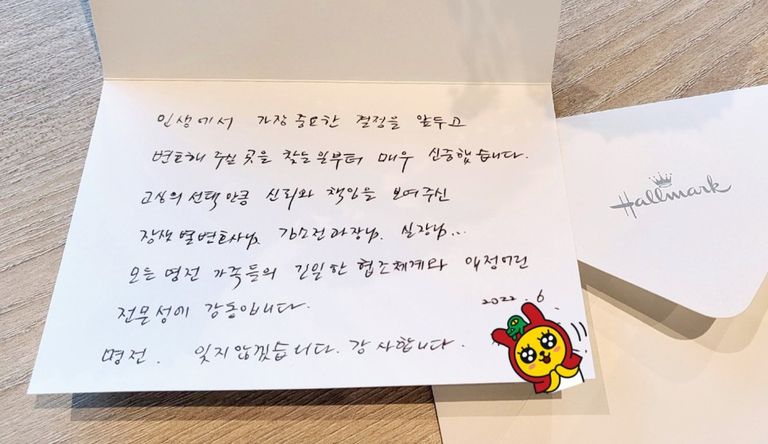 인생에서 가장 중요한 결정을 앞두고
변호해 주실 곳을 찾는일부터 매우 신중했습니다.
고심의 선택 만큼 신뢰와 책임을 보여주신
장샛별변호사님, 김소전과장님, 실장님...
모든 명전 가족들의 긴밀한 협조체계와 애정어린
전문성에 감동입니다.
2022. 6
명전. 잊지않겠습니다. 감사합니다.
Hallmark